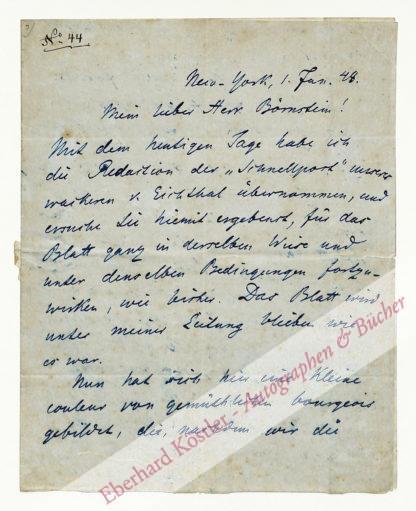 No. 44
New-York, 1. Jan. 48.
Mein lieber Herr Börnstein!
Mit dem heutigen Tage habe ich
die Redaction der „Schnellpost" unseres
wackeren v. Eichthal übernommen, und
ersuche Sie hiemit ergebenst, für das
Blatt ganz in derselben Weise und
unter denselben Bedingungen fortzu-
wirken, wie bisher. Das Blatt wird
unter meiner Leitung bleiben was
es war.
Nun hat sich hier eine kleine
couleur von gemüthlichen bourgeois
gebildet, die, nachdem wir die
Eberhard Köstler - Autographen & Bücher